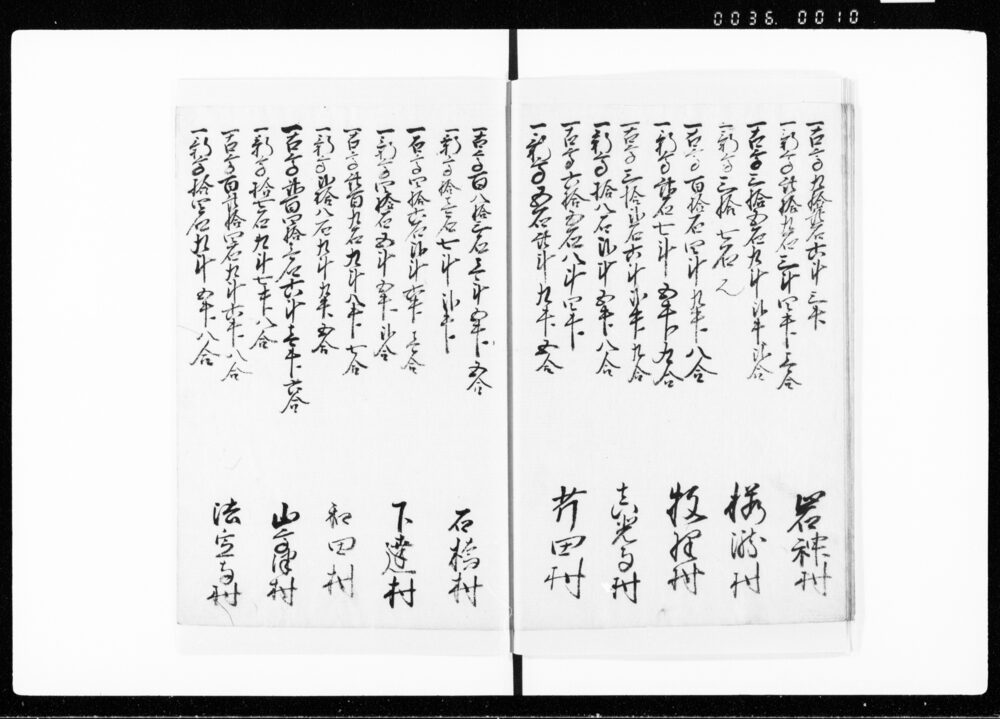 0036 0010
一古高九拾弐石六斗三升
一新高弐拾九石三斗四升壱合
岩神村
一古高三拾五石九斗弐升弐合
一新高三拾七石也
村
一古高百拾石四斗九升八合
一新高弐石七斗五升九合
牧村
一古高三拾弐石六斗弐升九合
一新高拾八石弐斗五升八合
真光寺村
一古高六拾五石八斗四升
一新高五石弐斗九升五合
芹田村
一古高百八拾三石壱斗五升五合
一新高拾壱石七斗弐升
石橋村
一古高四拾六石弐斗六升壱合
一新高四拾石五斗五升弐合
下達村
一古高弐百九石九斗八升七合
一新高弐拾八石九斗九升五合
和田村
一古高弐百四拾三石六斗壱升六合
一新高拾七石九斗七升八合
山村
一古高百弐拾四石九斗六升八合
一新高拾四石九斗五升八合
法寺村